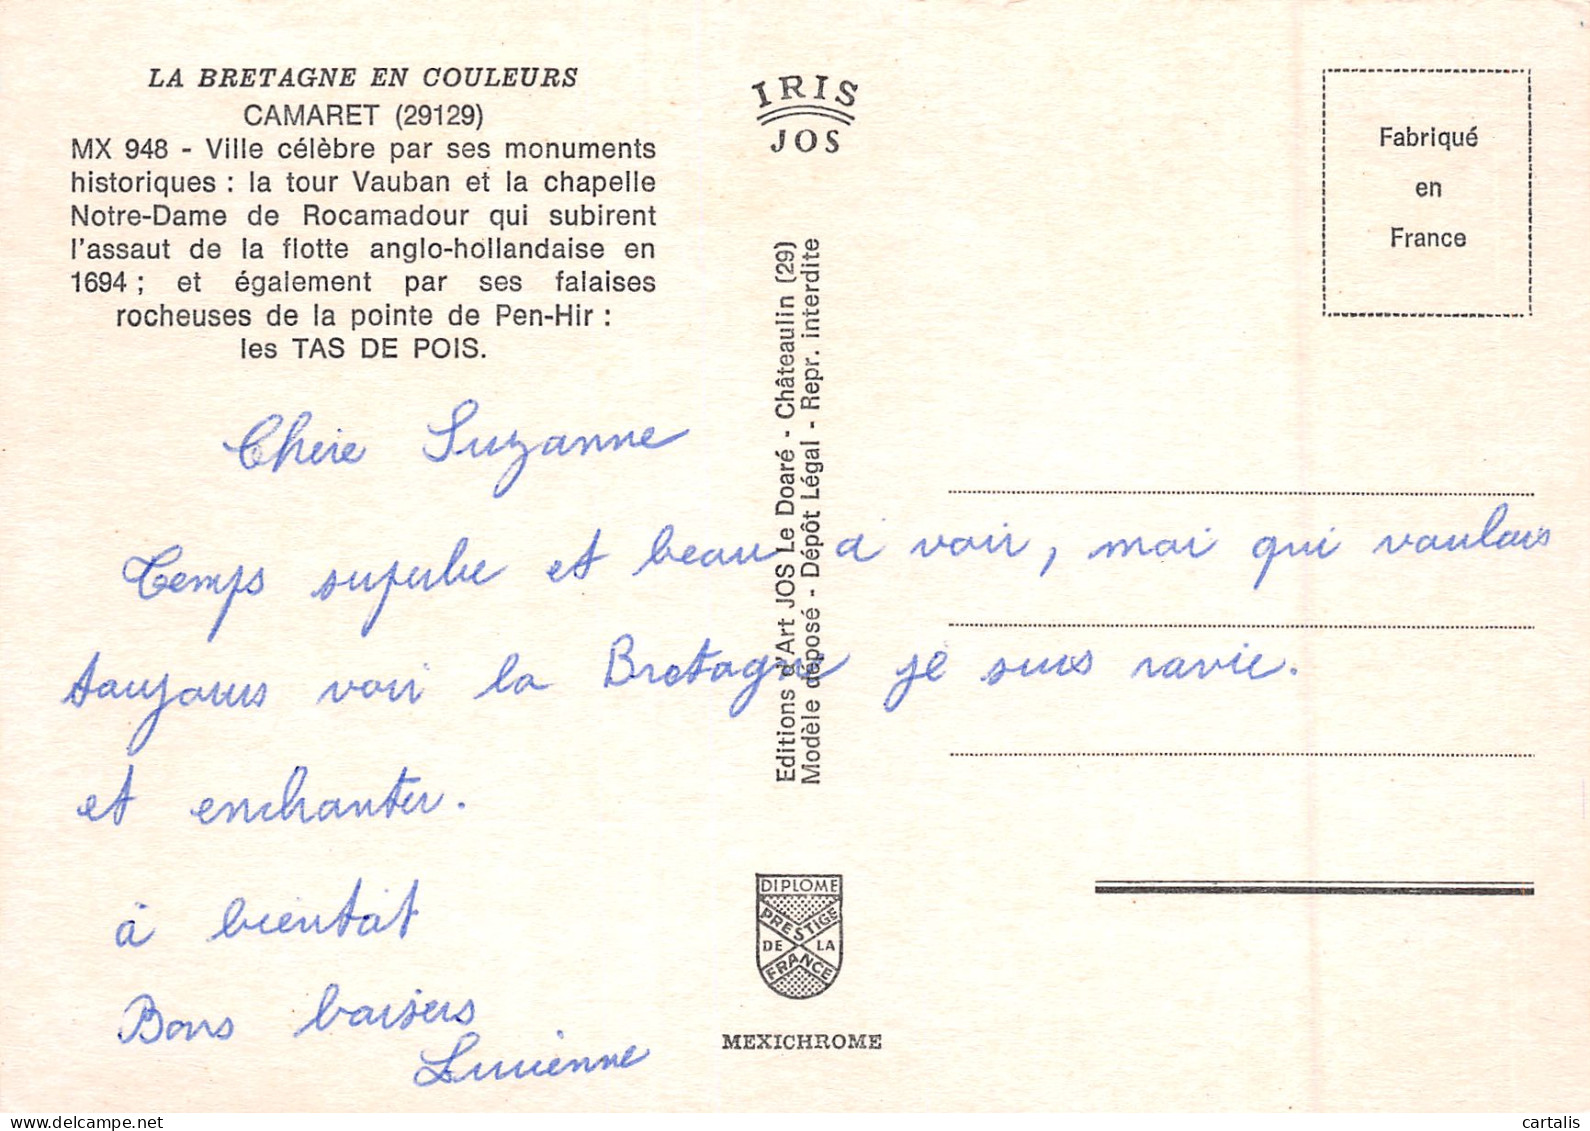 LA BRETAGNE EN COULEURS
CAMARET (29129)
MX 948 - Ville célèbre par ses monuments
historiques : la tour Vauban et la chapelle
Notre-Dame de Rocamadour qui subirent
l'assaut de la flotte anglo-hollandaise en
1694 ; et également par ses falaises
rocheuses de la pointe de Pen-Hir :
les TAS DE POIS.
IRIS
JOS
Fabriqué
en
France
Editions d'Art JOS Le Doaré - Châteaulin (29)
Modèle déposé - Dépôt Légal - Repr. interdite
Chere Suzanne
Temps superbe et beau a voir, moi qui voulais
toujours voir la Bretagne je suis ravie.
et enchanter.
à bientot
Bons baisers
Lucienne
DIPLOME
PRESTIGE
DE LA
FRANCE
MEXICHROME
www.delcampe.net
cartalis